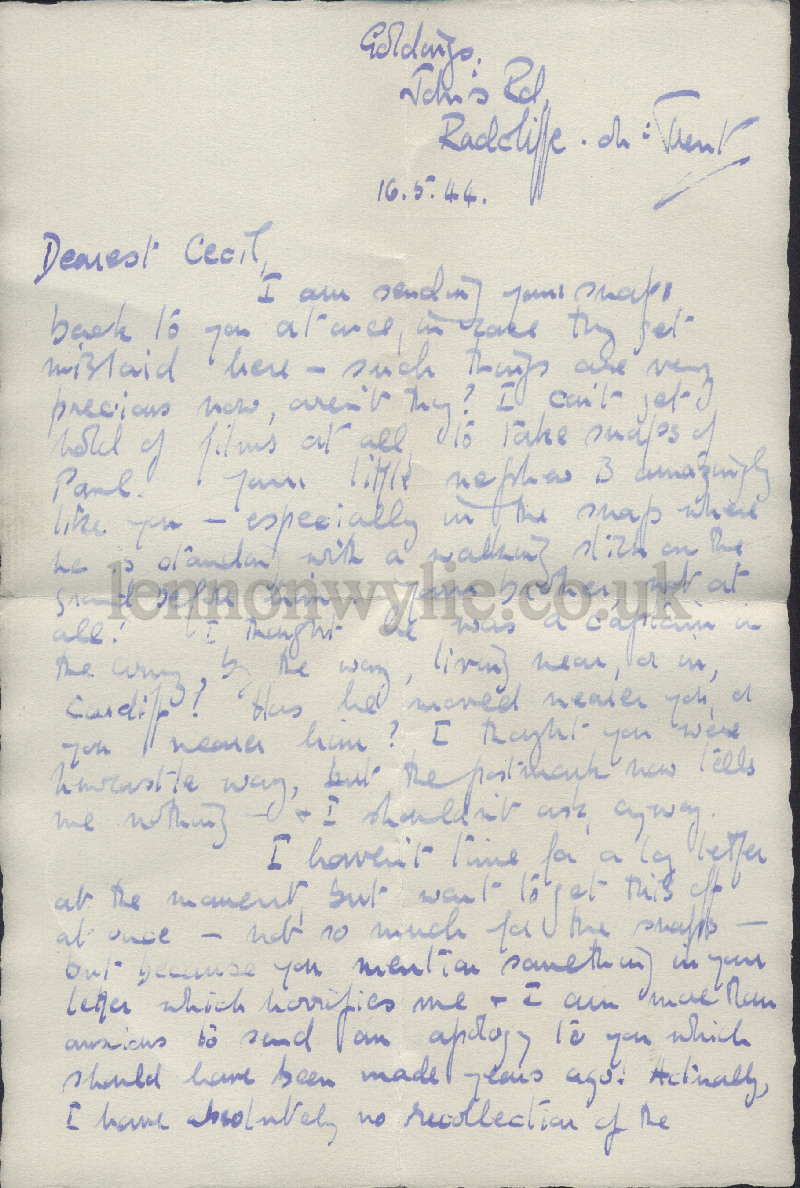 Goldings.
John's Rd,
Radcliffe-on-Trent
16.5.44.
Dearest Cecil,
I am sending your snaps
back to you at once, in case they get
mislaid here – such things are very
precious now, aren't they? I can't get
hold of films at all to take snaps of
Paul. Your little nephew is amazingly
like you – especially in the snap where
he is standing with a walking stick on the
ground before him. Your brother, not at
all! I thought he was a captain in
the army, by the way, living near, or in,
Cardiff? Has he moved nearer you, or
you nearer him? I thought you were
Newcastle way, but the postmark now tells
me nothing – + I shouldn't ask, anyway.
I haven't time for a long letter
at the moment, but want to get this off
at once – not so much for the snaps –
but because you mention something in your
letter which horrifies me + I am more than
anxious to send an apology to you which
should have been made years ago! Actually,
I have absolutely no recollection of the
lennonwylie.co.uk